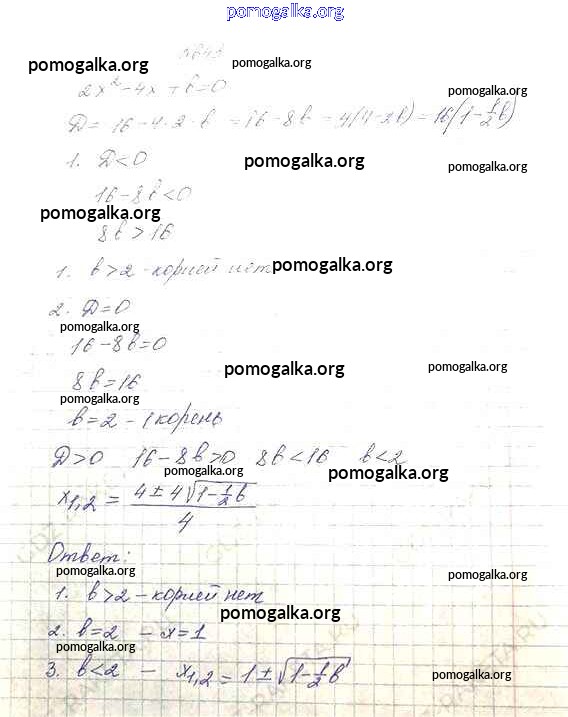 pomogalka.org
№643
pomogalka.org pomogalka.org
2x² - 4x + b = 0
pomogalka.org
D = 16 - 4·2·b = 16 - 8b = 4(4-2b) = 16(1-½b)
1. D<0
pomogalka.org pomogalka.org
16 - 8b < 0
pomogalka.org
8b > 16
1. b>2 - корней нет
pomogalka.org
2. D=0
pomogalka.org
16 - 8b = 0
pomogalka.org pomogalka.org
8b = 16
pomogalka.org
b = 2 - 1 корень
D>0 16 - 8b>0 8b<16 b<2
pomogalka.org pomogalka.org
x₁,₂ = (4 ± 4√(1-½b))/4
Ответ:
pomogalka.org pomogalka.org
1. b>2 - корней нет
pomogalka.org
2. b=2 - x=1
pomogalka.org
3. b<2 - x₁,₂ = 1±√(1-½b)
pomogalka.org